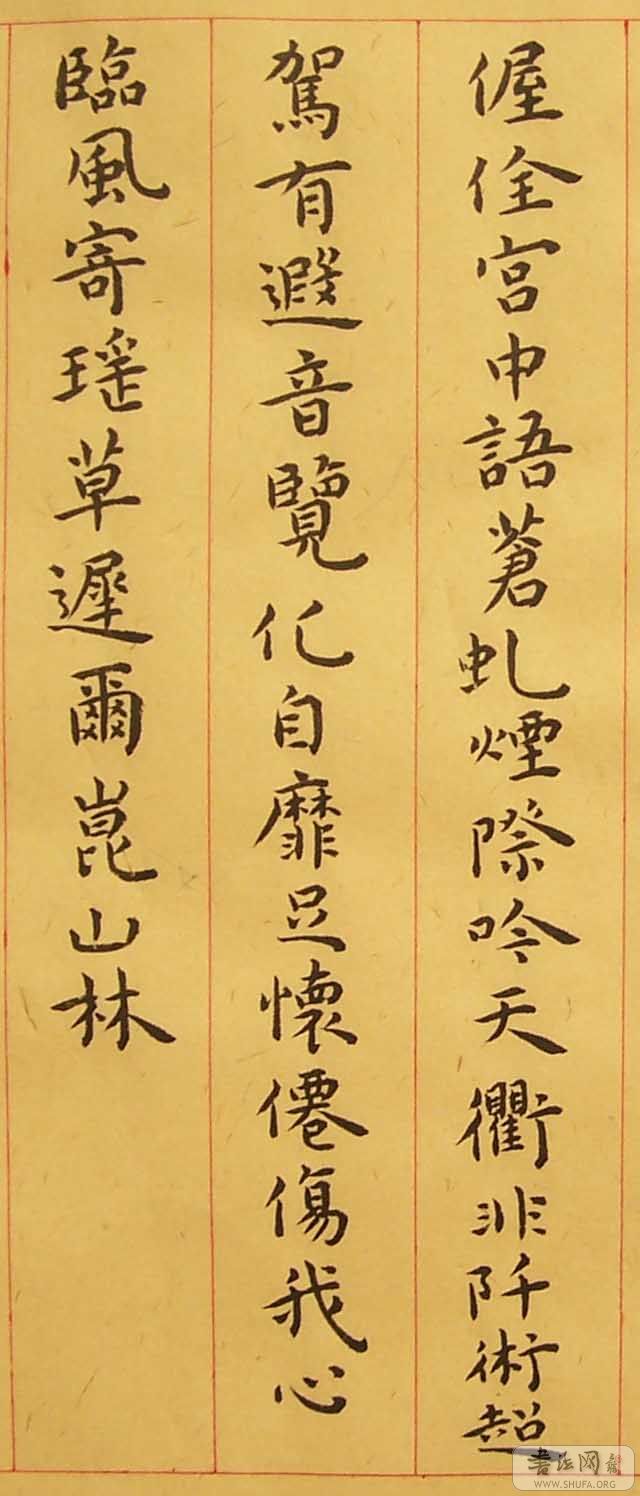 偓佺宮中語蒼虬煙際吟天衢非阡術超
駕有遐音覽化自靡足懷僊傷我心
臨風寄瑤草遲爾崑山林
書法网
WWW.SHUFA.ORG